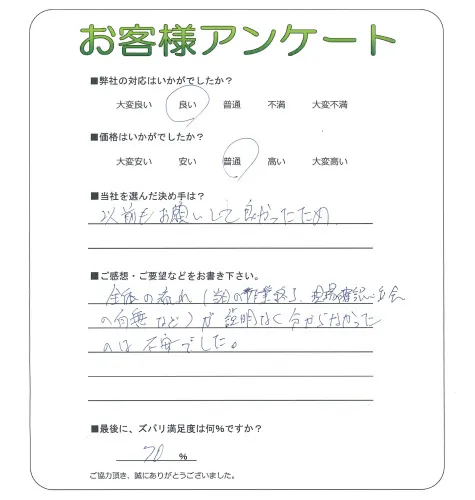 お客様アンケート
■弊社の対応はいかがでしたか？
大変良い 良い 普通 不満 大変不満
■価格はいかがでしたか？
大変安い 安い 普通 高い 大変高い
■当社を選んだ決め手は？
以前もお願いして良かったため
■ご感想・ご要望などをお書き下さい。
全体の流れ（当日の作業終了、現場確認、立会
の有無など）が説明なく分からなかった
のは不安でした。
■最後に、ズバリ満足度は何%ですか？
70 %
ご協力頂き、誠にありがとうございました。